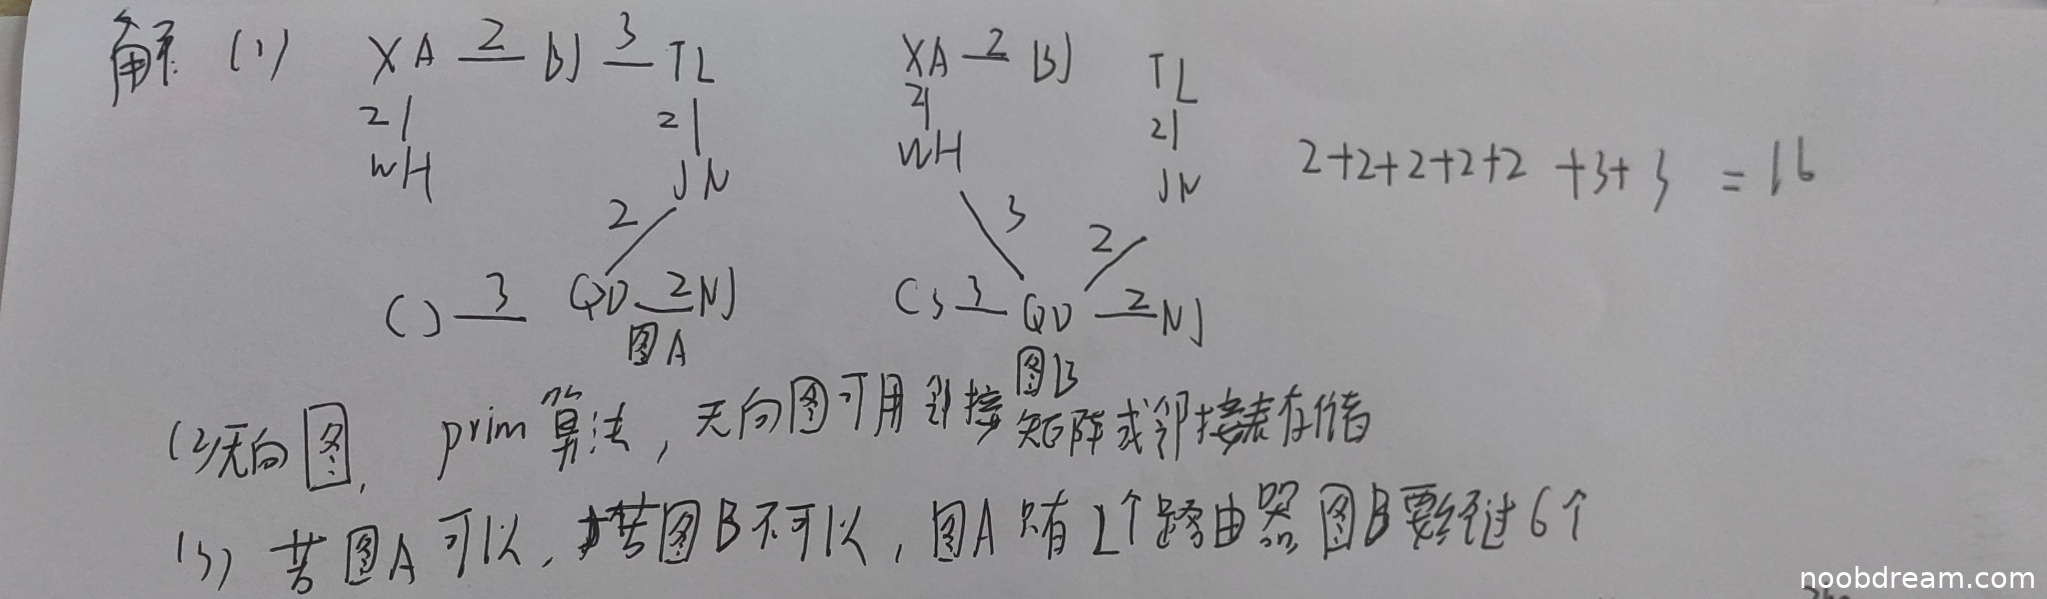 解 (1) XA 2 BJ 3 TL XA 2 BJ TL
2 2 2 2
WH JN WH JN 2+2+2+2+2 +3+3 = 16
2 3 2
CS 3 QD 2 NJ CS 3 QD 2 NJ
图A 图B
(2)无向图, prim算法, 无向图可用邻接矩阵或邻接表存储
(3) 若图A可以, 若图B不可以, 图A只有 个路由器 图B要经过6个
noobdream.com